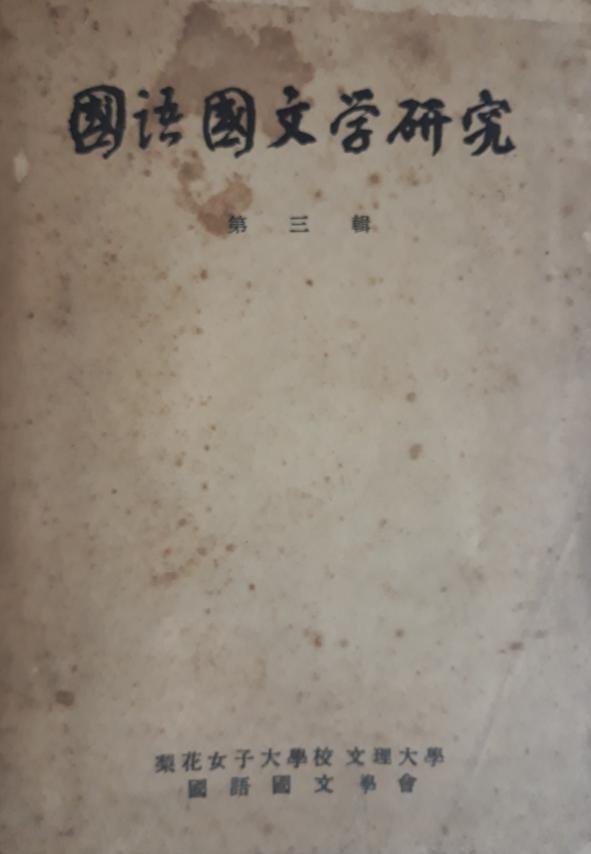 國語國文学研究
第三輯
梨花女子大學校 文理大學
國語國文學會